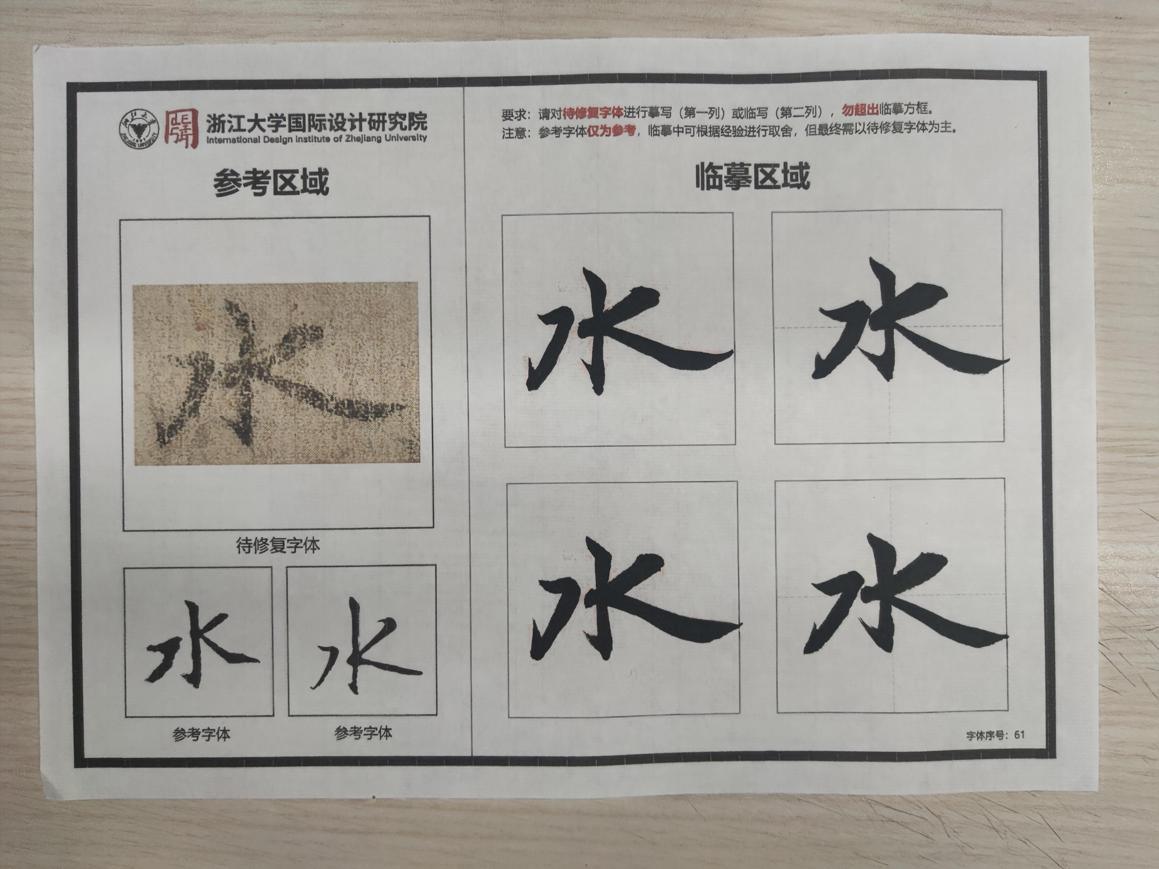 浙江大学国际设计研究院
International Design Institute of Zhejiang University
参考区域
水
待修复字体
水
水
参考字体
参考字体
要求：请对待修复字体进行摹写（第一列）或临写（第二列），勿超出临摹方框。
注意：参考字体仅为参考，临摹中可根据经验进行取舍，但最终需以待修复字体为主。
临摹区域
水
水
水
水
字体序号：61